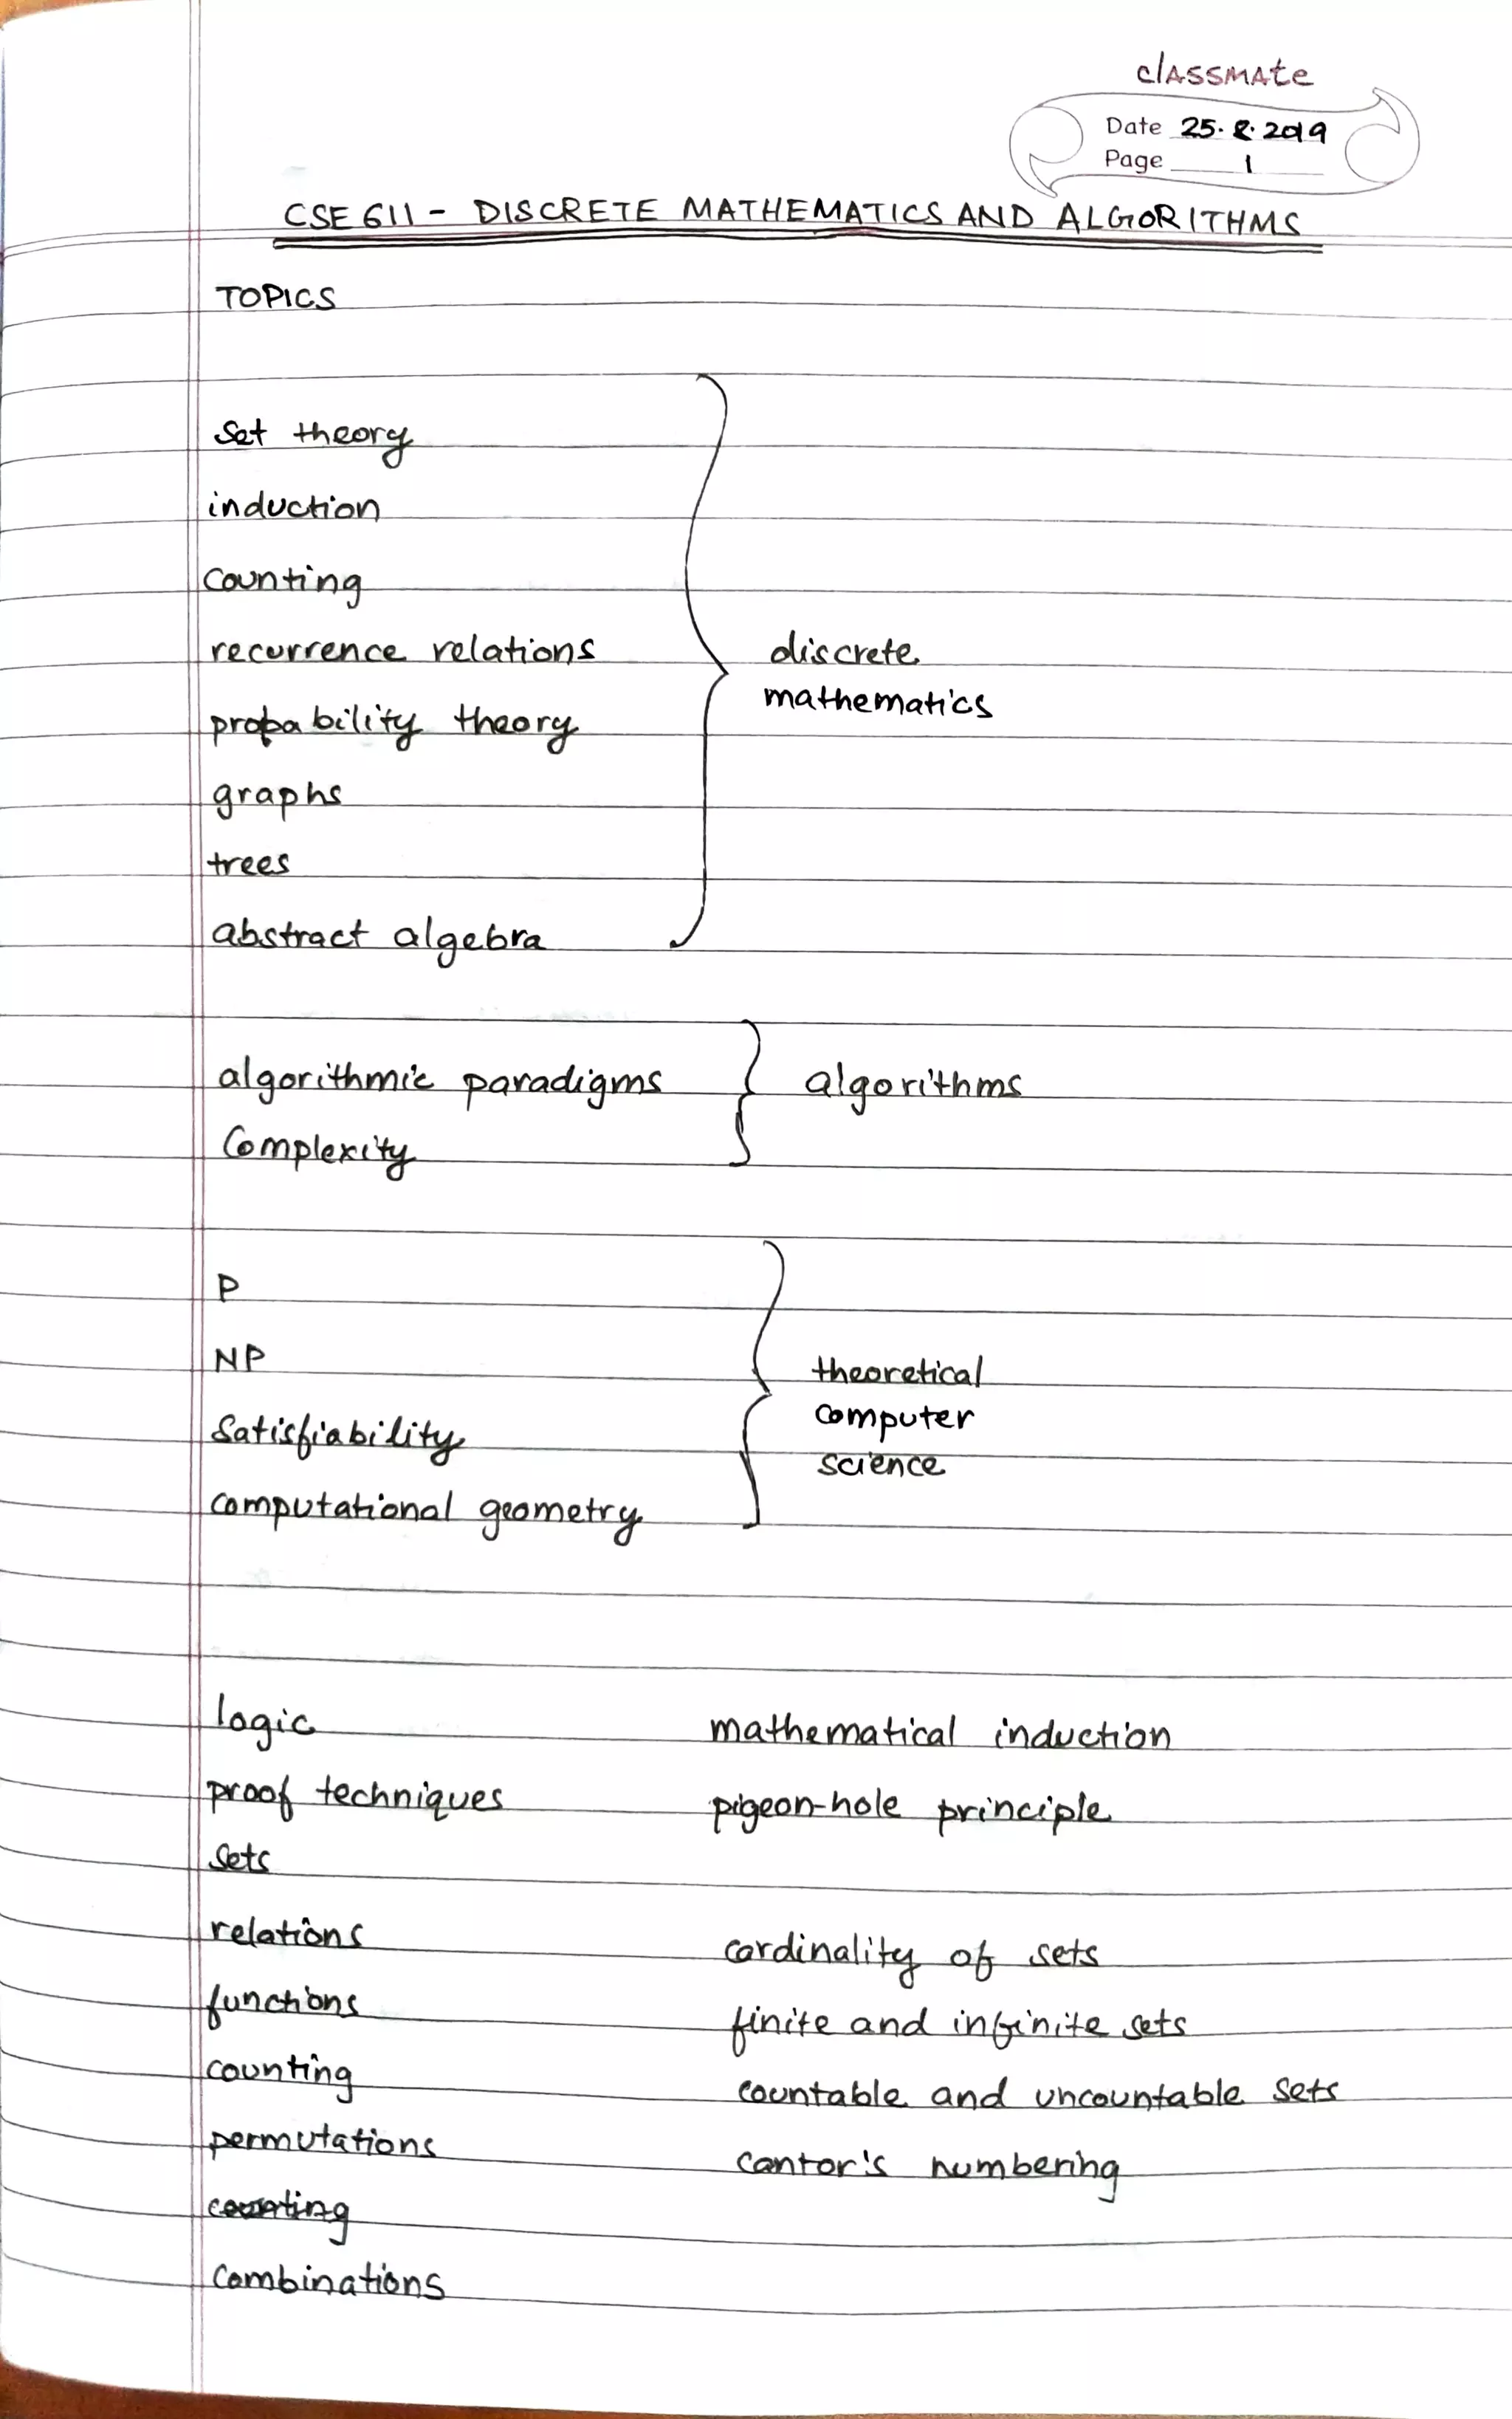 classmate
Date 25.8.2019
Page 1
CSE 611 - DISCRETE MATHEMATICS AND ALGORITHMS
TOPICS
Set theory
induction
Counting
recurrence relations
discrete
mathematics
probability theory
graphs
trees
abstract algebra
algorithmic paradigms
algorithms
Complexity
P
NP
theoretical
computer
science
Satisfiability
computational geometry
logic
mathematical induction
proof techniques
pigeon-hole principle
Sets
relations
cardinality of sets
functions
finite and infinite sets
counting
countable and uncountable sets
permutations
cantor's numbering
counting
Combinations